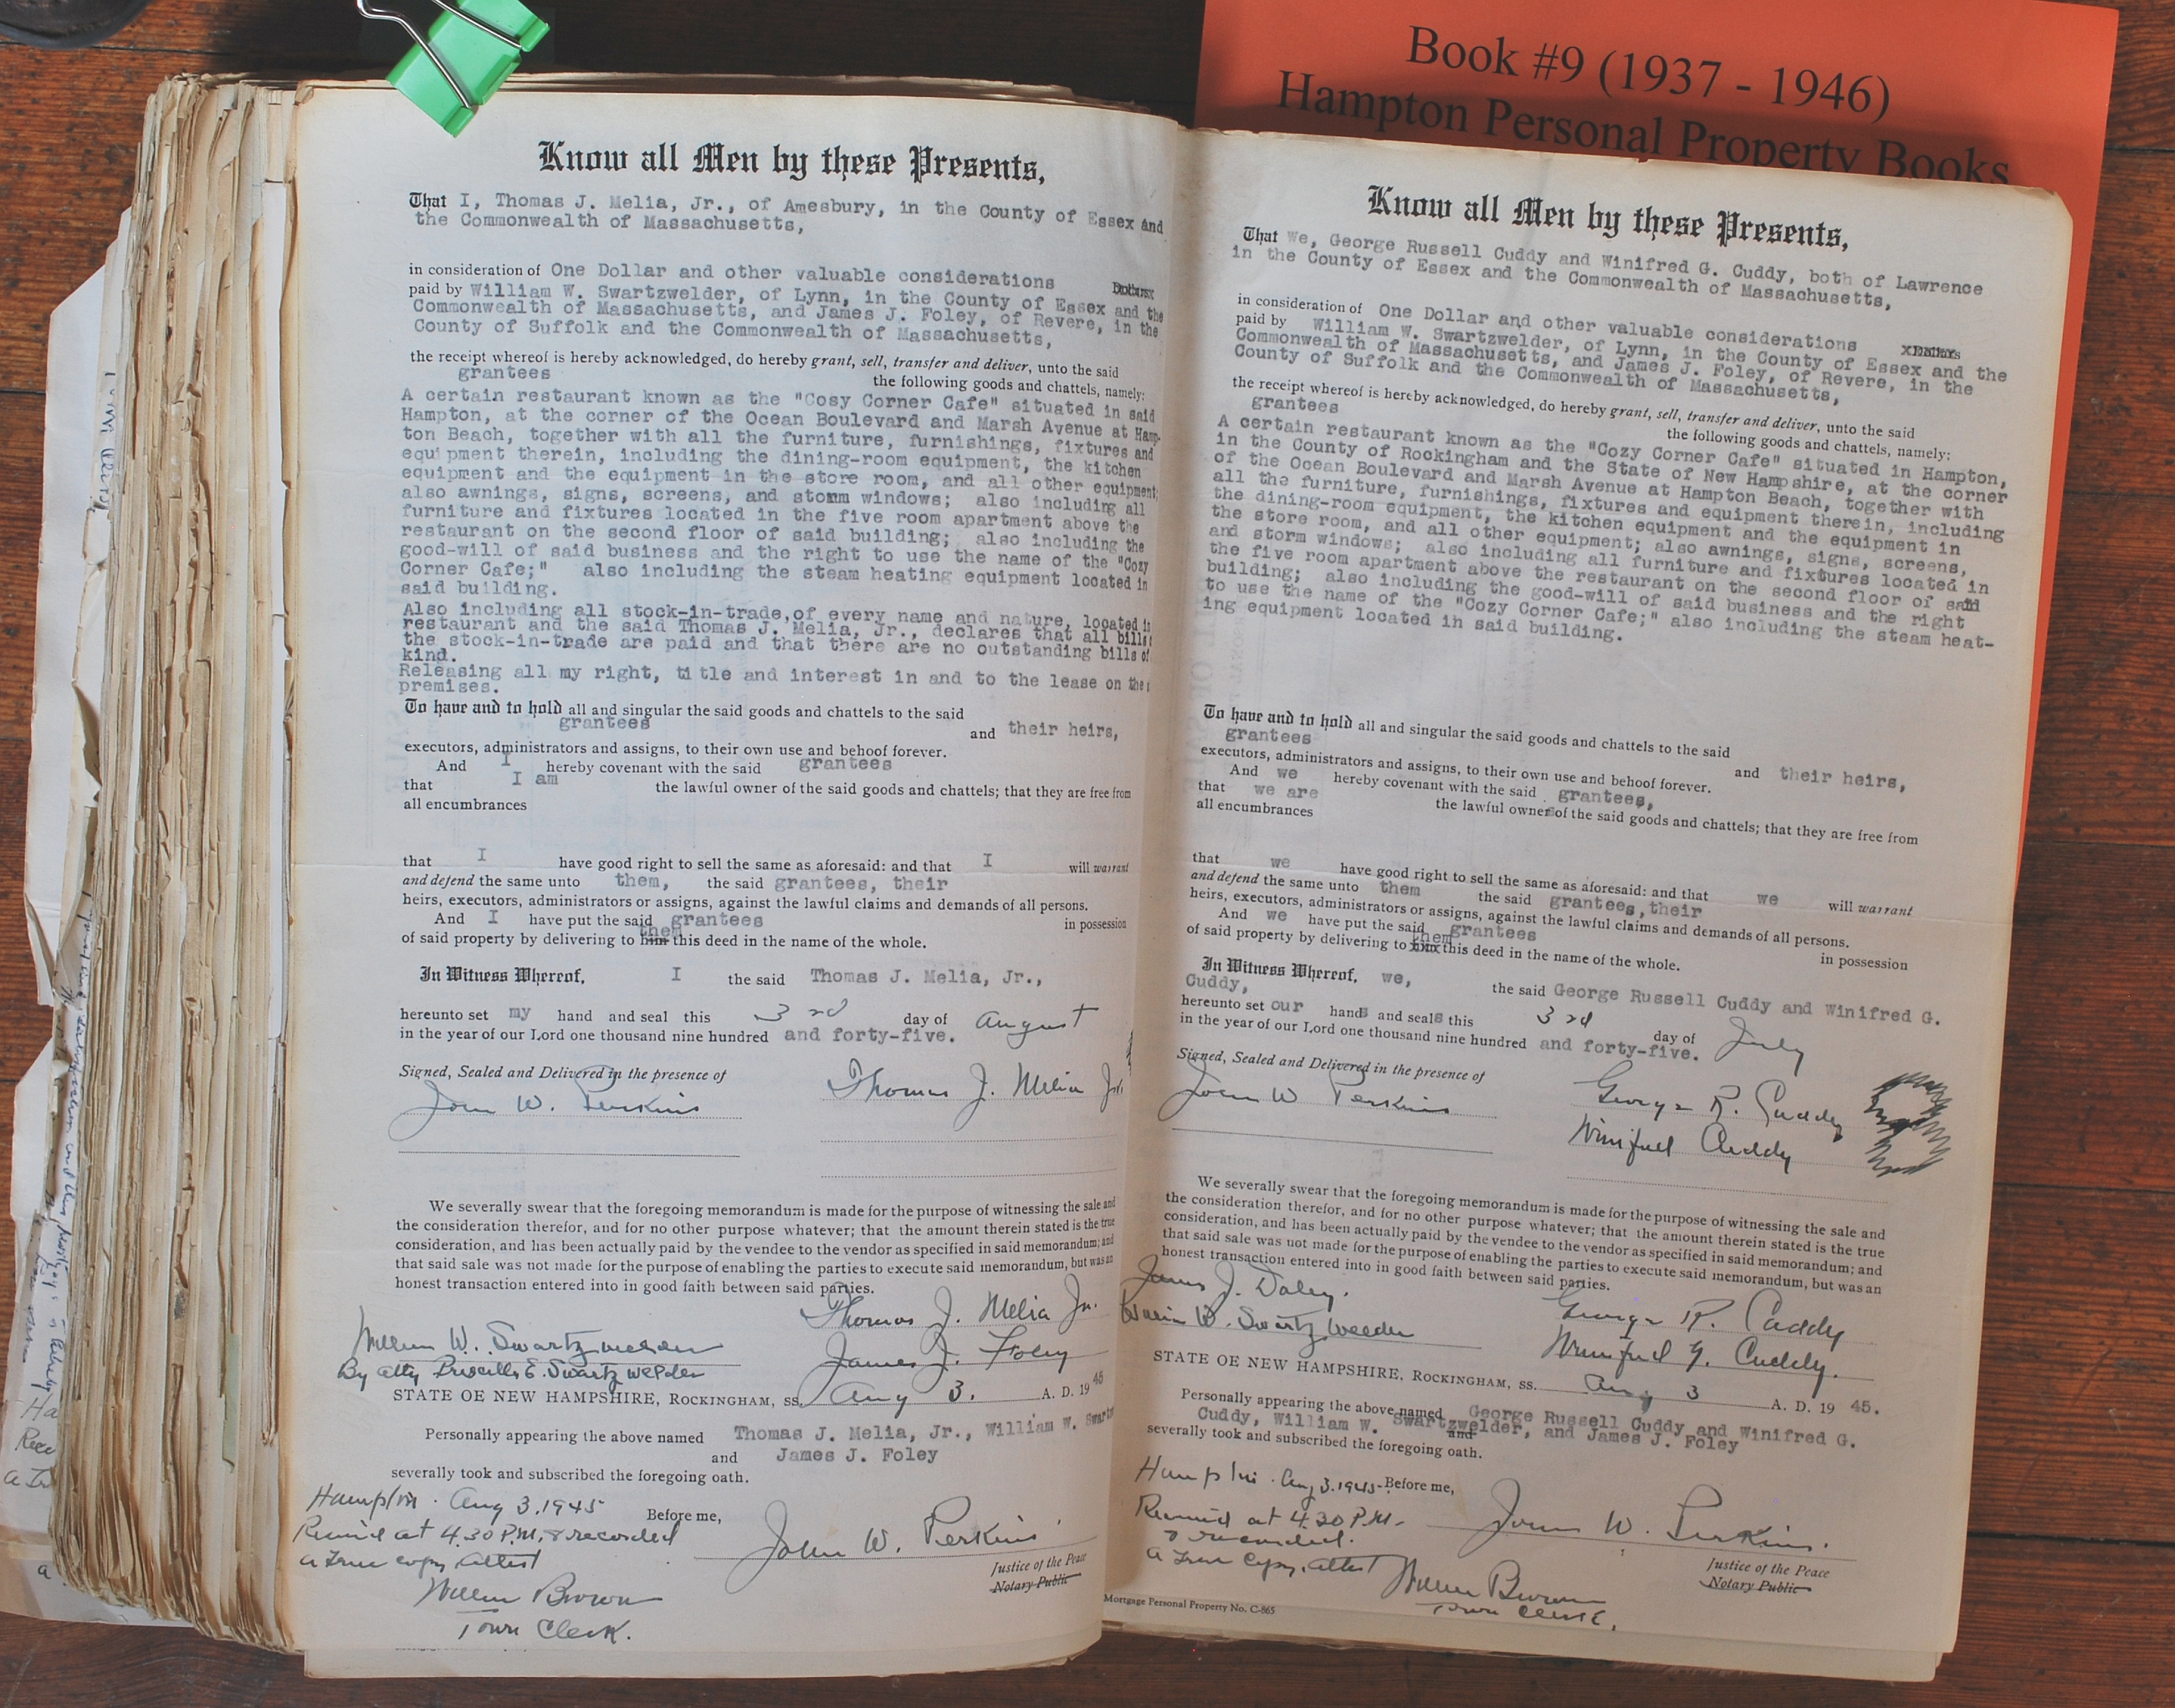 Book #9 (1937 - 1946)
Hampton Personal Property Books
Know all Men by these Presents,
That I, Thomas J. Melia, Jr., of Amesbury, in the County of Essex and
the Commonwealth of Massachusetts,
in consideration of One Dollar and other valuable considerations
paid by William W. Swartzwelder, of Lynn, in the County of Essex and the
Commonwealth of Massachusetts, and James J. Foley, of Revere, in the
County of Suffolk and the Commonwealth of Massachusetts,
the receipt whereof is hereby acknowledged, do hereby grant, sell, transfer and deliver, unto the said
grantees the following goods and chattels, namely:
A certain restaurant known as the "Cosy Corner Cafe" situated in said
Hampton, at the corner of the Ocean Boulevard and Marsh Avenue at Hamp-
ton Beach, together with all the furniture, furnishings, fixtures and
equipment therein, including the dining-room equipment, the kitchen
equipment and the equipment in the store room, and all other equipment;
also awnings, signs, screens, and storm windows; also including all
furniture and fixtures located in the five room apartment above the
restaurant on the second floor of said building; also including the
good-will of said business and the right to use the name of the "Cozy
Corner Cafe;" also including the steam heating equipment located in
said building.
Also including all stock-in-trade,of every name and nature, located in
restaurant and the said Thomas J. Melia, Jr., declares that all bills
the stock-in-trade are paid and that there are no outstanding bills of
kind.
Releasing all my right, title and interest in and to the lease on the
premises.
To have and to hold all and singular the said goods and chattels to the said
grantees and their heirs,
executors, administrators and assigns, to their own use and behoof forever.
And I hereby covenant with the said grantees
that I am the lawful owner of the said goods and chattels; that they are free from
all encumbrances
that I have good right to sell the same as aforesaid: and that I will warrant
and defend the same unto them, the said grantees, their
heirs, executors, administrators or assigns, against the lawful claims and demands of all persons.
And I have put the said grantees in possession
of said property by delivering to him them this deed in the name of the whole.
In Witness Whereof, I the said Thomas J. Melia, Jr.,
hereunto set my hand and seal this 3rd day of August
in the year of our Lord one thousand nine hundred and forty-five.
Signed, Sealed and Delivered in the presence of
John W. Perkins Thomas J. Melia Jr.
We severally swear that the foregoing memorandum is made for the purpose of witnessing the sale and
the consideration therefor, and for no other purpose whatever; that the amount therein stated is the true
consideration, and has been actually paid by the vendee to the vendor as specified in said memorandum; and
that said sale was not made for the purpose of enabling the parties to execute said memorandum, but was an
honest transaction entered into in good faith between said parties.
Thomas J. Melia Jr.
William W. Swartzwelder James J. Foley
By atty Priscilla E. Swartzwelder
STATE OE NEW HAMPSHIRE, ROCKINGHAM, ss. Aug 3. A. D. 1945
Personally appearing the above named Thomas J. Melia, Jr., William W. Swartz
and James J. Foley
severally took and subscribed the foregoing oath.
Hampton. Aug 3. 1945 Before me,
Received at 4.30 P.M. & recorded
John W. Perkins
a True copy, attest
Justice of the Peace
Notary Public
William Brown
Town Clerk.
Know all Men by these Presents,
That We, George Russell Cuddy and Winifred G. Cuddy, both of Lawrence
in the County of Essex and the Commonwealth of Massachusetts,
in consideration of One Dollar and other valuable considerations Dollars
paid by William W. Swartzwelder, of Lynn, in the County of Essex and the
Commonwealth of Massachusetts, and James J. Foley, of Revere, in the
County of Suffolk and the Commonwealth of Massachusetts,
the receipt whereof is hereby acknowledged, do hereby grant, sell, transfer and deliver, unto the said
grantees the following goods and chattels, namely:
A certain restaurant known as the "Cozy Corner Cafe" situated in Hampton,
in the County of Rockingham and the State of New Hampshire, at the corner
of the Ocean Boulevard and Marsh Avenue at Hampton Beach, together with
all the furniture, furnishings, fixtures and equipment therein, including
the dining-room equipment, the kitchen equipment and the equipment in
the store room, and all other equipment; also awnings, signs, screens,
and storm windows; also including all furniture and fixtures located in
the five room apartment above the restaurant on the second floor of said
building; also including the good-will of said business and the right
to use the name of the "Cozy Corner Cafe;" also including the steam heat-
ing equipment located in said building.
To have and to hold all and singular the said goods and chattels to the said
grantees and their heirs,
executors, administrators and assigns, to their own use and behoof forever.
And we hereby covenant with the said grantees,
that we are the lawful owners of the said goods and chattels; that they are free from
all encumbrances
that we have good right to sell the same as aforesaid: and that we will warrant
and defend the same unto them the said grantees, their
heirs, executors, administrators or assigns, against the lawful claims and demands of all persons.
And we have put the said grantees in possession
of said property by delivering to him them this deed in the name of the whole.
In Witness Whereof, we, the said George Russell Cuddy and Winifred G.
Cuddy,
hereunto set our hands and seals this 3rd day of July
in the year of our Lord one thousand nine hundred and forty-five.
Signed, Sealed and Delivered in the presence of
John W Perkins George R. Cuddy
Winifred Cuddy
We severally swear that the foregoing memorandum is made for the purpose of witnessing the sale and
the consideration therefor, and for no other purpose whatever; that the amount therein stated is the true
consideration, and has been actually paid by the vendee to the vendor as specified in said memorandum; and
that said sale was not made for the purpose of enabling the parties to execute said memorandum, but was an
honest transaction entered into in good faith between said parties.
James J. Daley. George R. Cuddy
W. Swartzwelder Winifred G. Cuddy.
STATE OE NEW HAMPSHIRE, ROCKINGHAM, ss. Aug 3 A. D. 1945.
Personally appearing the above named George Russell Cuddy and Winifred G.
Cuddy, William W. Swartzwelder, and James J. Foley
and
severally took and subscribed the foregoing oath.
Hampton. Aug 3. 1945- Before me,
Received at 4.30 P.M. John W. Perkins.
& recorded.
a True Copy, attest
Justice of the Peace
Notary Public
William Brown
Town Clerk.
Mortgage Personal Property No. C-865